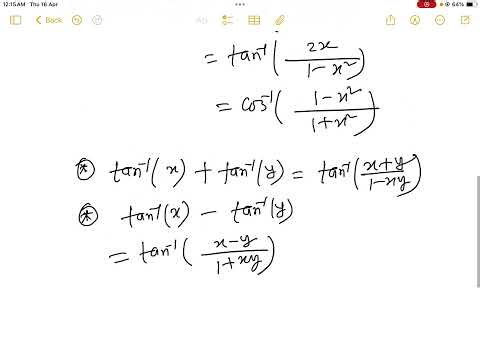 12:15 AM Thu 16 Apr
64%
Back
= tan⁻¹(2x/1-x²)
= cos⁻¹(1-x²/1+x²)
⊛ tan⁻¹(x) + tan⁻¹(y) = tan⁻¹(x+y/1-xy)
⊛ tan⁻¹(x) - tan⁻¹(y)
= tan⁻¹(x-y/1+xy)